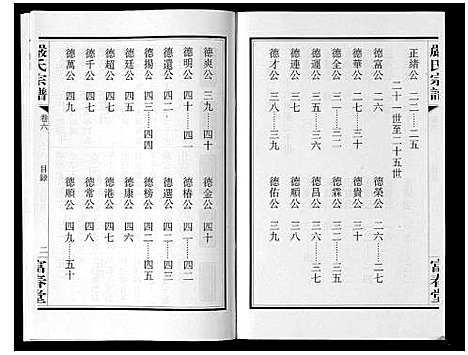 嚴氏宗譜 富春堂
正緒公 二二—二五
二十一世至二十五世
德富公 二六 德榮公 二六—二七
德華公 二六—三十 德貴公 三十
德全公 三二—三六 德霖公 三三—三六
德運公 三六—三七 德昌公 三六—三七
德連公 三八 德順公 三七
德才公 三八—三九 德佑公 三九
德爽公 三九—四十 德金公 四十
德明公 四十—四一 德椿公 四一—四二
德還公 四二 德選公 四二—四三
德揚公 四三—四四 德榜公 四二—四四
德廷公 四五 德康公 四六
德超公 四七 德港公 四七
德千公 四七 德常公 四八
德萬公 四九 德順公 四九—五十
嚴氏宗譜 卷六 目錄 二 富春堂